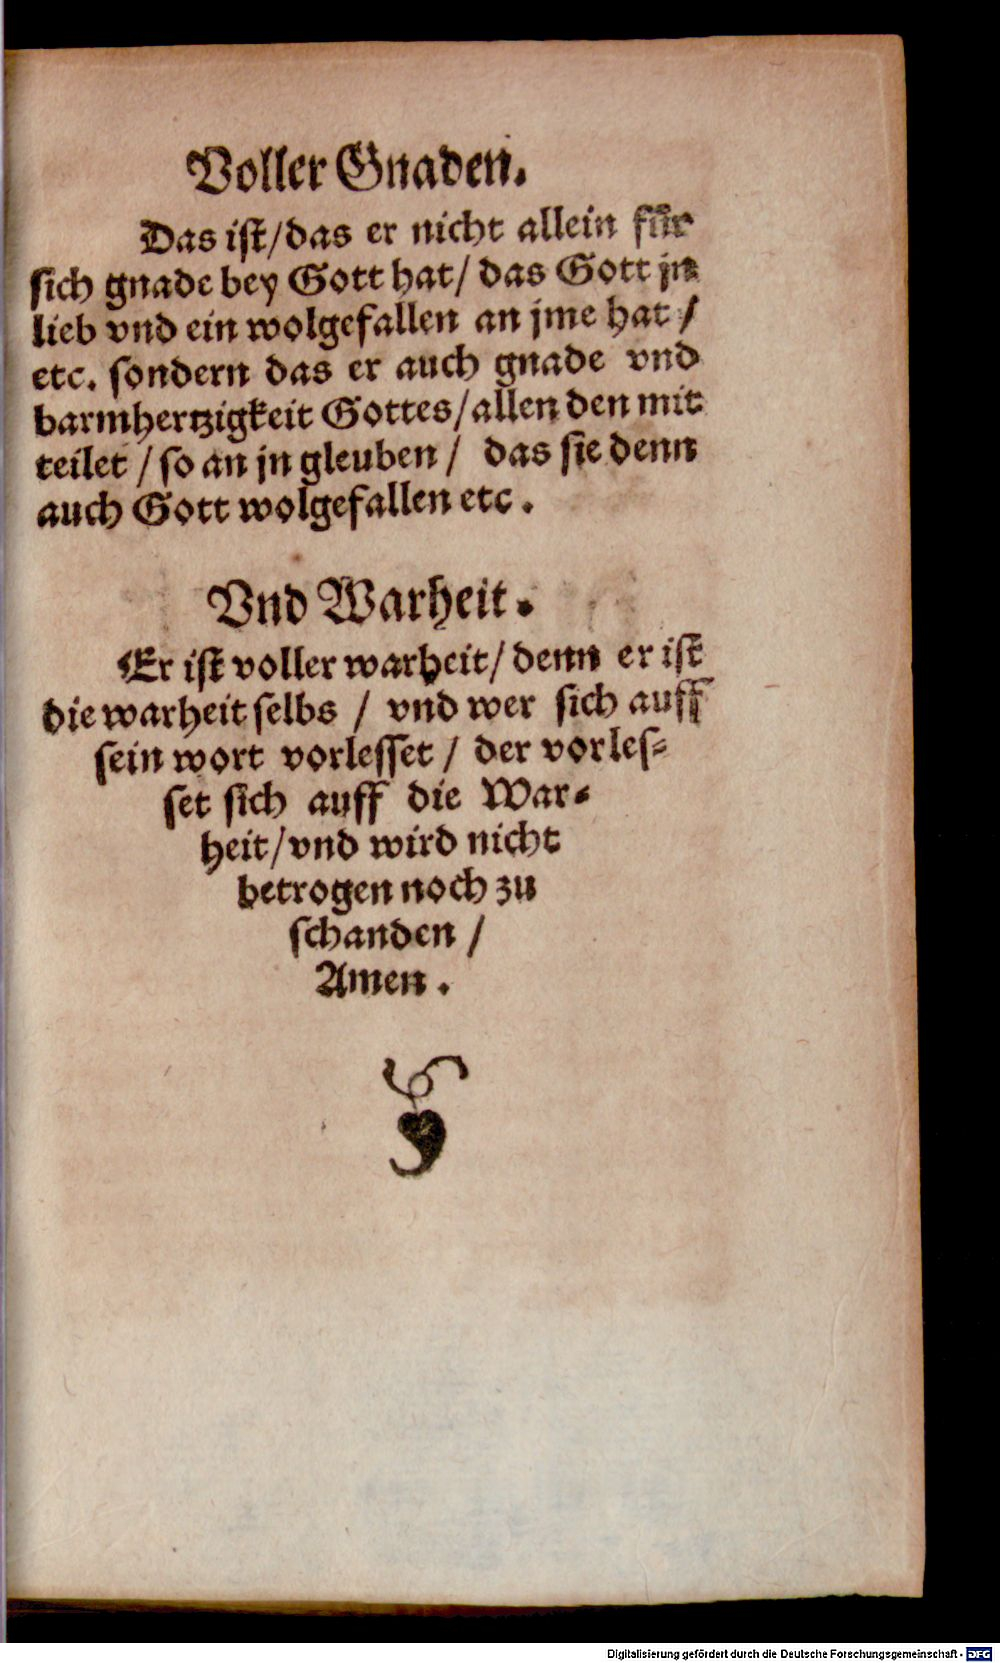 Voller Gnaden.
Das ist/das er nicht allein für
sich gnade bey Gott hat/ das Gott jn
lieb vnd ein wolgefallen an jme hat /
etc. sondern das er auch gnade vnd
barmhertzigkeit Gottes/allen den mit
teilet / so an jn gleuben / das sie denn
auch Gott wolgefallen etc.
Vnd Warheit.
Er ist voller warheit/ denn er ist
die warheit selbs / vnd wer sich auff
sein wort vorlesset / der vorles-
set sich auff die War-
heit/vnd wird nicht
betrogen noch zu
schanden /
Amen.
Digitalisierung gefördert durch die Deutsche Forschungsgemeinschaft - DFG